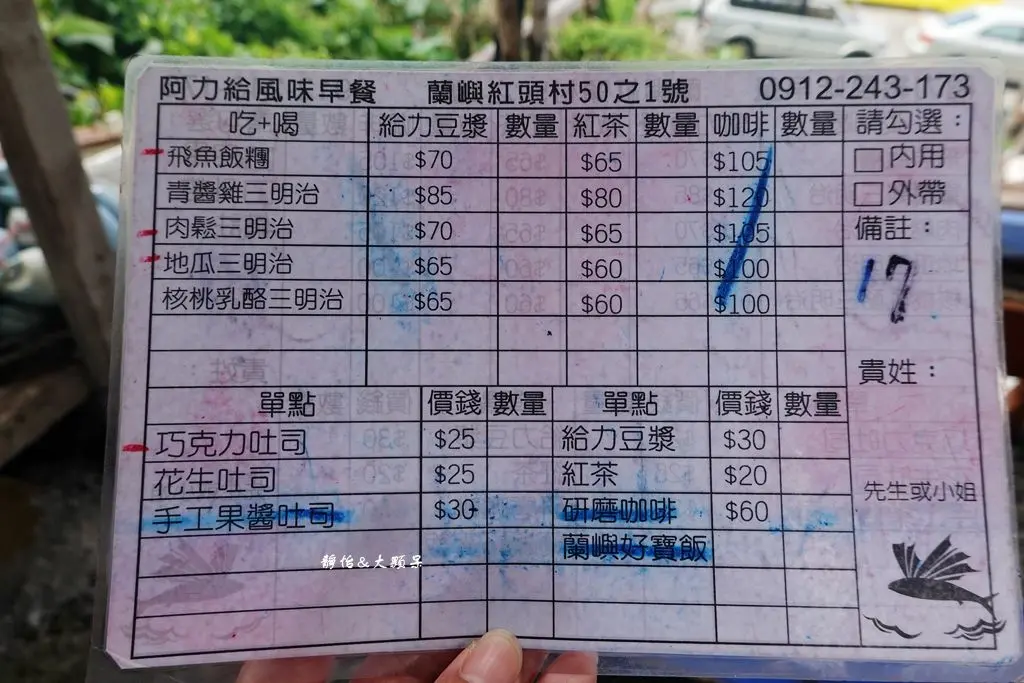 阿力給風味早餐 蘭嶼紅頭村50之1號 0912-243-173
吃+喝 給力豆漿 數量 紅茶 數量 咖啡 數量 請勾選：
飛魚飯糰 $70 $65 $105 □內用
青醬雞三明治 $85 $80 $120 □外帶
肉鬆三明治 $70 $65 $105 備註：
地瓜三明治 $65 $60 $100 17
核桃乳酪三明治 $65 $60 $100
貴姓：
單點 價錢 數量 單點 價錢 數量
巧克力吐司 $25 給力豆漿 $30
花生吐司 $25 紅茶 $20 先生或小姐
手工果醬吐司 $30 研磨咖啡 $60
蘭嶼好寶飯
靜怡&大顆呆